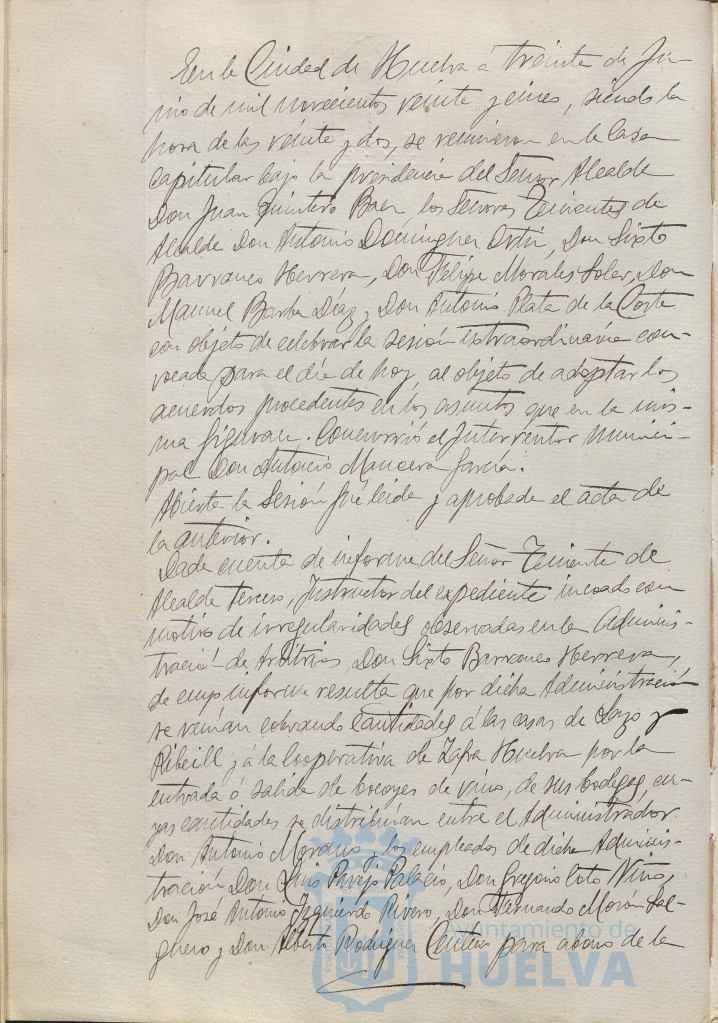 En la Ciudad de Huelva á treinta de Ju-
nio de mil novecientos veinte y cinco, siendo la
hora de las veinte y dos, se reunieron en la Casa
Capitular bajo la presidencia del Señor Alcalde
Don Juan Quintero Baez los Señores Tenientes de
Alcalde Don Antonio Dominguez Ortiz, Don Sixto
Barranco Herrera, Don Felipe Morales Soler, Don
Manuel Barba Díaz y Don Antonio Plata de la Corte
con objeto de celebrar la sesión extraordinaria con-
vocada para el día de hoy, al objeto de adoptar los
acuerdos procedentes en los asuntos que en la mis-
ma figuran. Concurrió el Interventor Munici-
pal Don Antonio Mancera García.
Abierta la Sesión fué leida y aprobada el acta de
la anterior.
Dada cuenta de informe del Señor Teniente de
Alcalde tercero, Instructor del expediente incoado con
motivo de irregularidades observadas en la Adminis-
tración de Arbitrios Don Sixto Barranco Herrera,
de cuyo informe resulta que por dicha Administración
se venían cobrando cantidades á las casas de Lazo y
Ribeill y á la Cooperativa de Zafra Huelva por la
entrada ó salida de bocoyes de vino, de sus bodegas, cu-
yas cantidades se distribuían entre el Administrador
Don Antonio Morano y los empleados de dicha Adminis-
tración Don Luis Pavejo Palacio, Don Gregorio Coto Niño,
Don José Antonio Izquierdo Rivero, Don Fernando Morón Sal-
guero y Don Alberto Rodriguez para abono de la
Ayuntamiento de
HUELVA